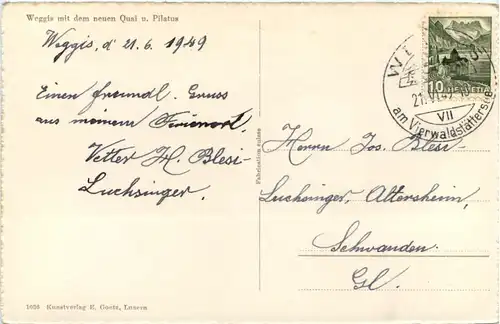 Weggis mit dem neuen Quai u. Pilatus
Weggis, d' 21.6 1949
Einen freundl. Gruss
aus meinem Ferienort.
Vetter H. Blesi-
Luchsinger
Fabrication suisse
10
HELVETIA
21.VI.
VII
am Vierwaldstättersee
Herrn Jos. Blesi-
Luchsinger, Altersheim,
Schwanden.
Gl.
1058 Kunstverlag E. Goetz, Luzern